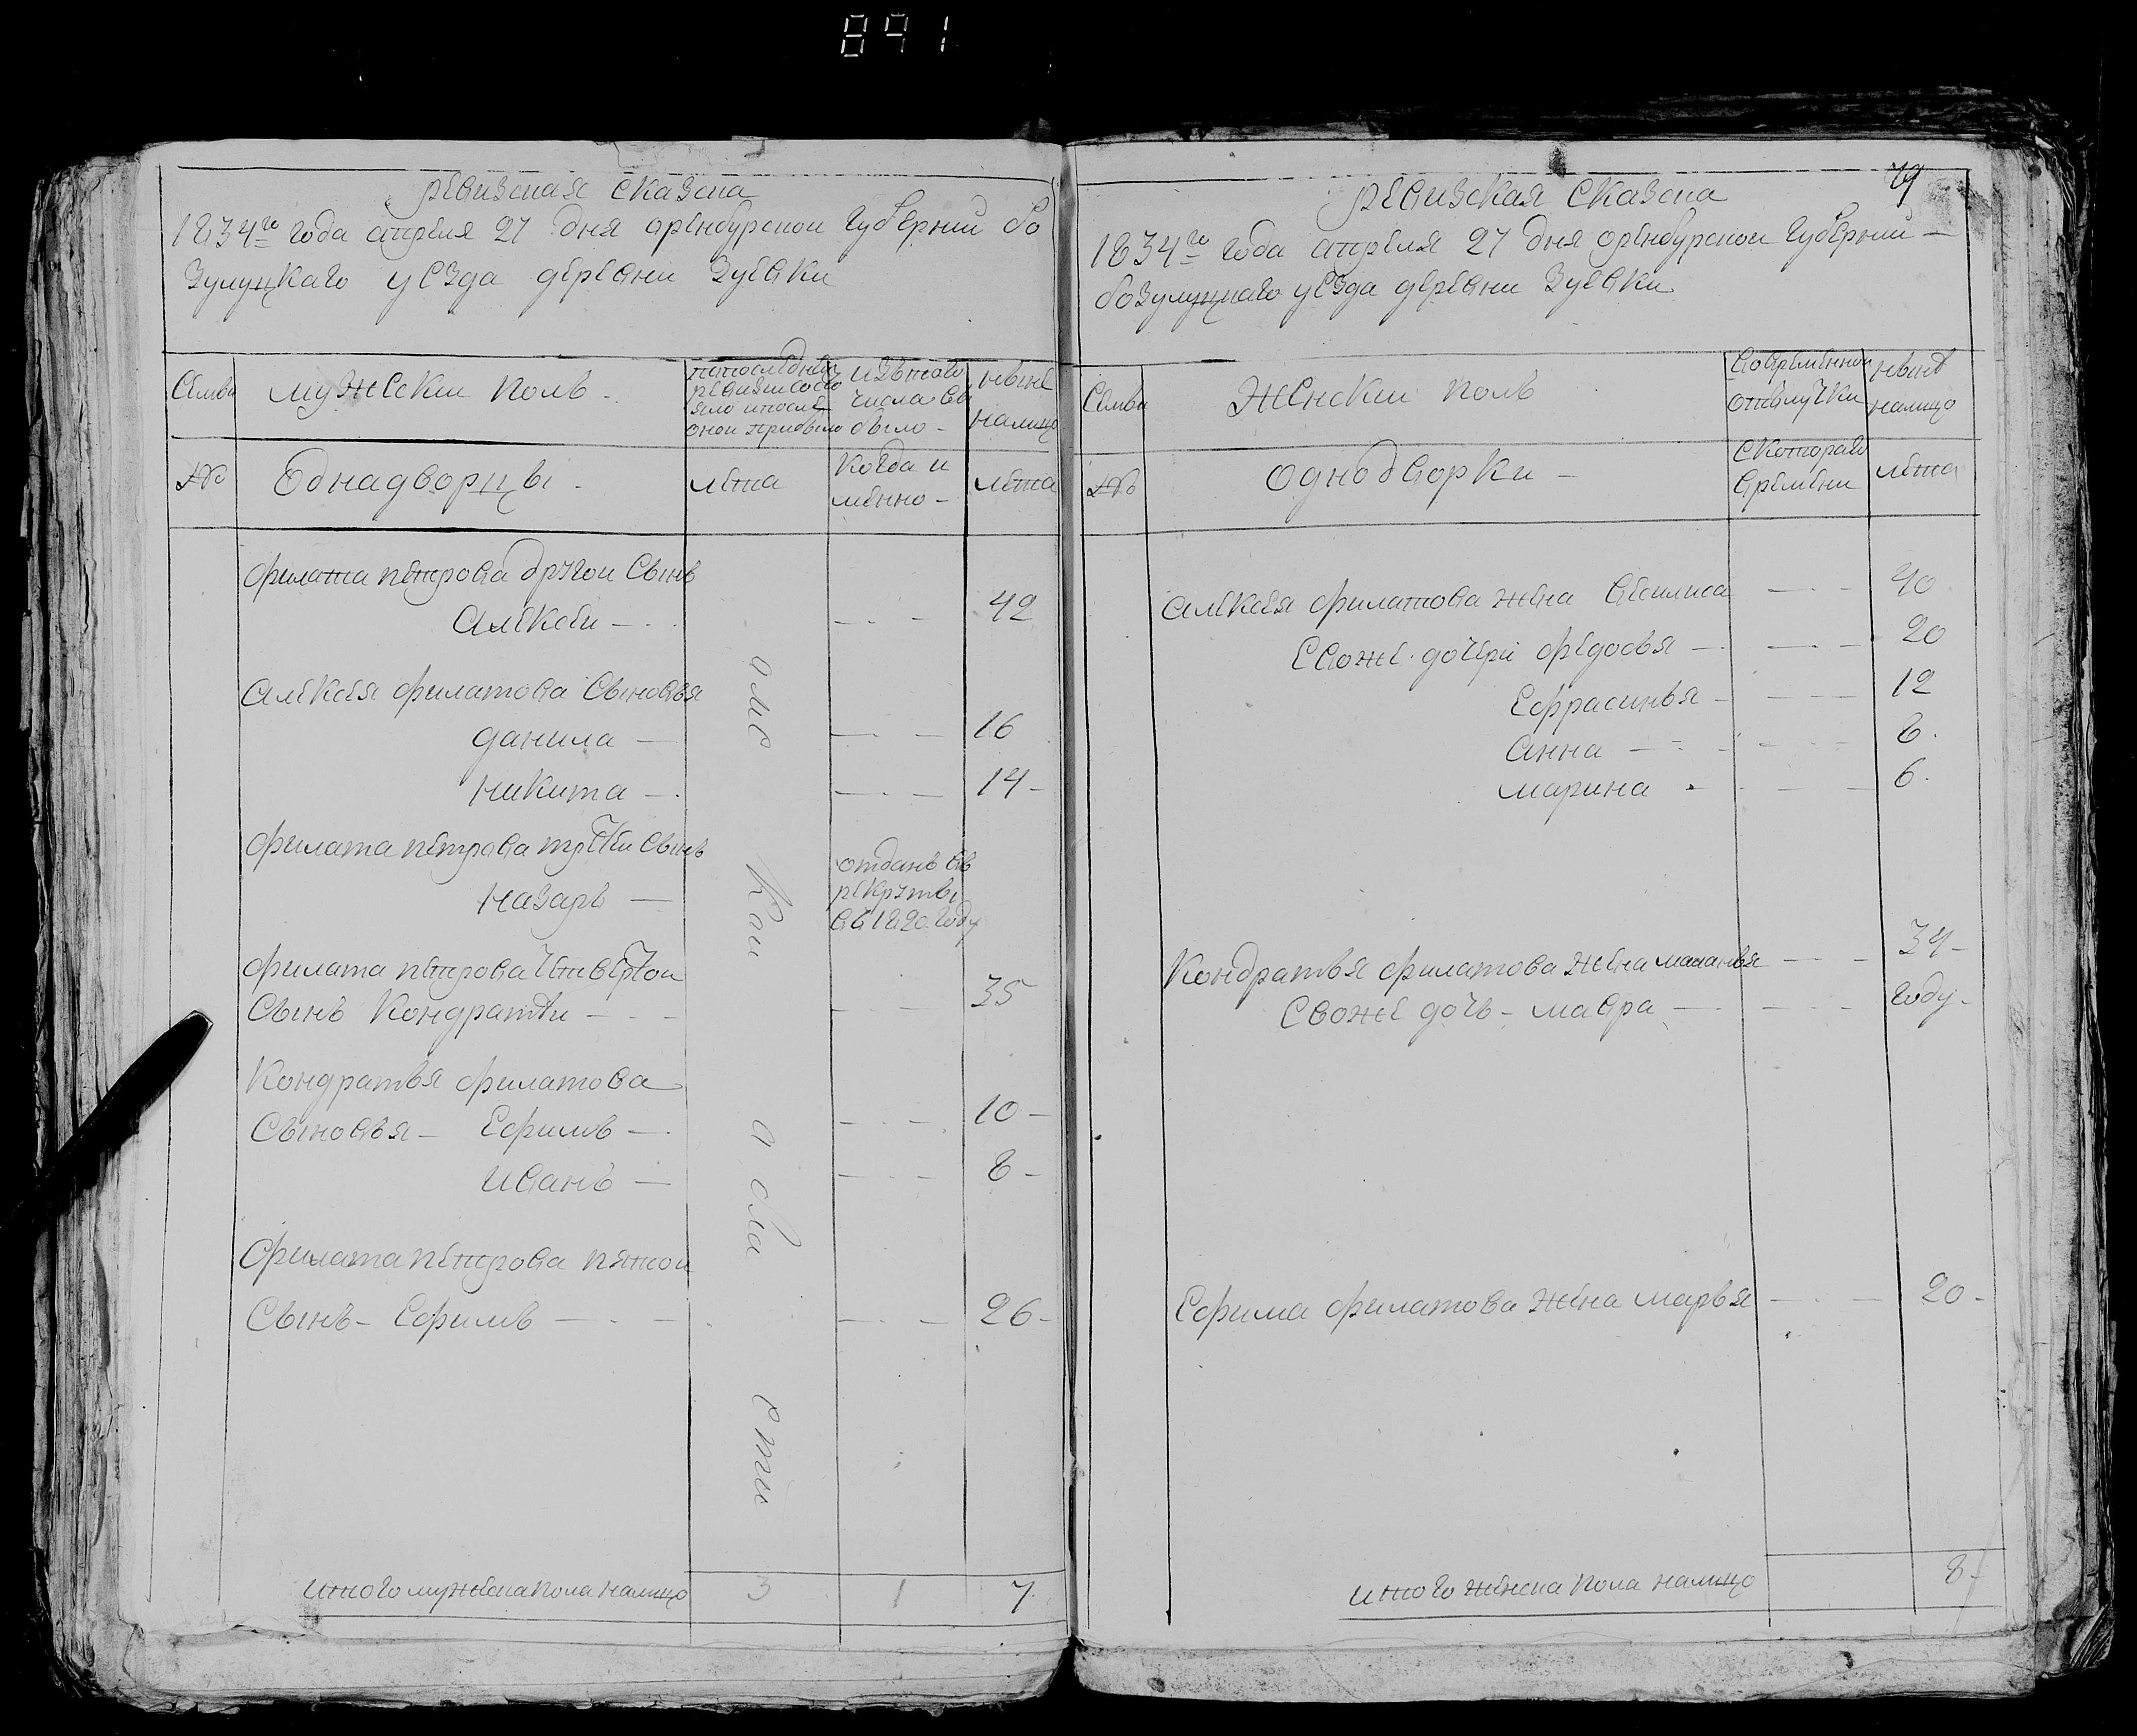 891
ревизская сказка
1834го года апреля 27 дня аренбурскои губернии бо
зулуцкаго уезда деревни Зуевки
Семьи
мужескии полъ
попоследнеи
ревизии состо
яло ипосле
онои прибыло
изътого
числа вы
было
ныне
налицо
№
Однадворцы
лета
когда и
менно
лета
филата петрова другои сынъ
Алексеи
42
Алексея филатова сыновья
данила
16
никита
14
филата петрова третеи сынъ
назаръ
отданъ въ
рекруты
въ 1820 году
филата петрова четвертои
сынъ Кондратеи
35
Кондратья филатова
сыновья Ефимъ
10
иванъ
8
филата петрова пятои
сынъ Ефимъ
26
итого мужеска пола налицо
3
1
7
79
ревизская сказка
1834го года апреля 27 дня оренбурскои губернии
бозулуцкаго уезда деревни Зуевки
Семьи
женскии полъ
вовременнои
отлучки
ныне
налицо
№
однодворки
скотораго
времени
лета
Алексея филатова жена Василиса
40
Евоже дочери федосья
20
Ефрасинья
12
Анна
8
марина
6
Кондратья филатова жена маланья
34
Евоже дочь мавра
году
Ефима филатова жена марья
20
итого женска пола налицо
8